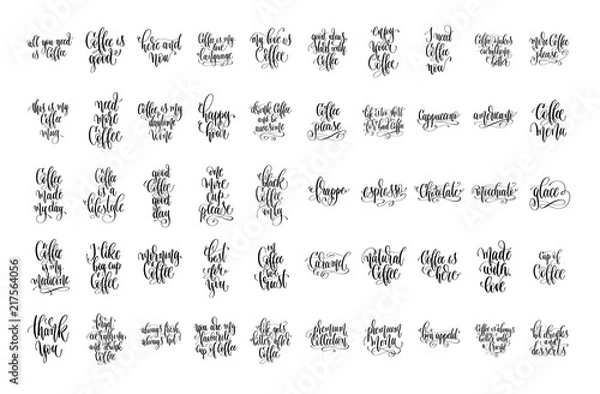 all you need
is Coffee
Coffee is
good
here and
now
Coffee is my
love
language
my love is
Coffee
good ideas
start with
Coffee
enjoy
your
Coffee
I need
Coffee
now
Coffee makes
everything
better
more Coffee
please
this is my
Coffee
mug
need
more
Coffee
Coffee is my
daytime
wine
happy
hour
drink Coffee
and be
awesome
Coffee
please
life is too short
for bad Coffee
Cappuccino
americano
Coffee
menu
Coffee
made
my day
Coffee
is a
lifestyle
good
Coffee
good
day
one
more
Cup
please
black
Coffee
only
frappe
espresso
Chocolate
glace
Coffee
is my
medicine
I like
big cup
Coffee
morning
Coffee
best
for
you
in
Coffee
we
trust
Caramel
natural
Coffee
Coffee is
here
made
with
love
cup of
Coffee
thank
you
forget
everything
and drink
Coffee
always fresh
always hot
you are my
favourite
cup of Coffee
life gets
better after
Coffee
premium
Collection
premium
menu
bon appetit
Coffee is always
better with
a friend
hot drinks
and
desserts
Adobe Stock | #217564056